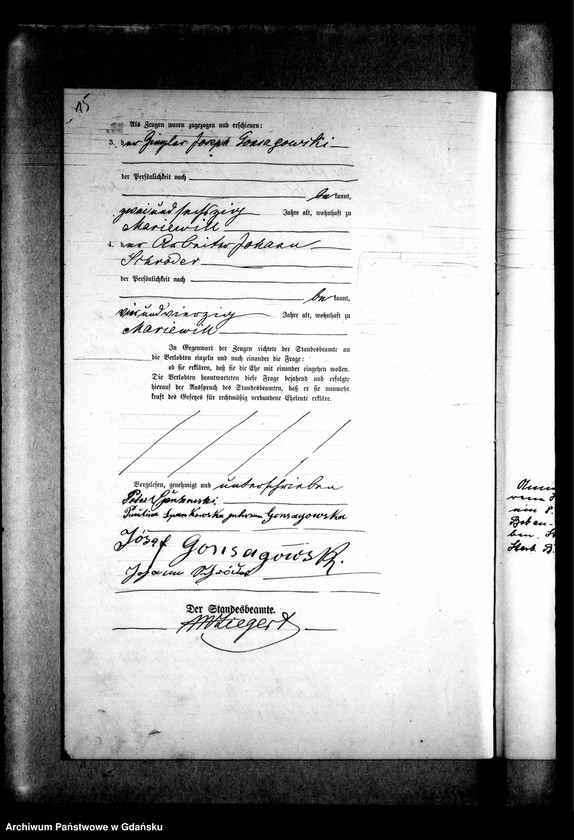 15
Als Zeugen waren zugezogen und erschienen:
3. der Joseph Gonsagowski
der Persönlichkeit nach
be kannt,
zweiundsechszig Jahre alt, wohnhaft zu
Mariewill
4. der Arbeiter Johann
Schröder
der Persönlichkeit nach
be kannt,
vierundvierzig Jahre alt, wohnhaft zu
Mariewill
In Gegenwart der Zeugen richtete der Standesbeamte an
die Verlobten einzeln und nach einander die Frage:
ob sie erklären, daß sie die Ehe mit einander eingehen wollen.
Die Verlobten beantworteten diese Frage bejahend und erfolgte
hierauf der Ausspruch des Standesbeamten, daß er sie nunmehr
kraft des Gesetzes für rechtmäßig verbundene Eheleute erkläre.
Vorgelesen, genehmigt und unterschrieben
Peter
Paulina geborene Gonsagowska
Józef Gonsagowski.
Johann Schröder
Der Standesbeamte.
Ziegert
Archiwum Państwowe w Gdańsku